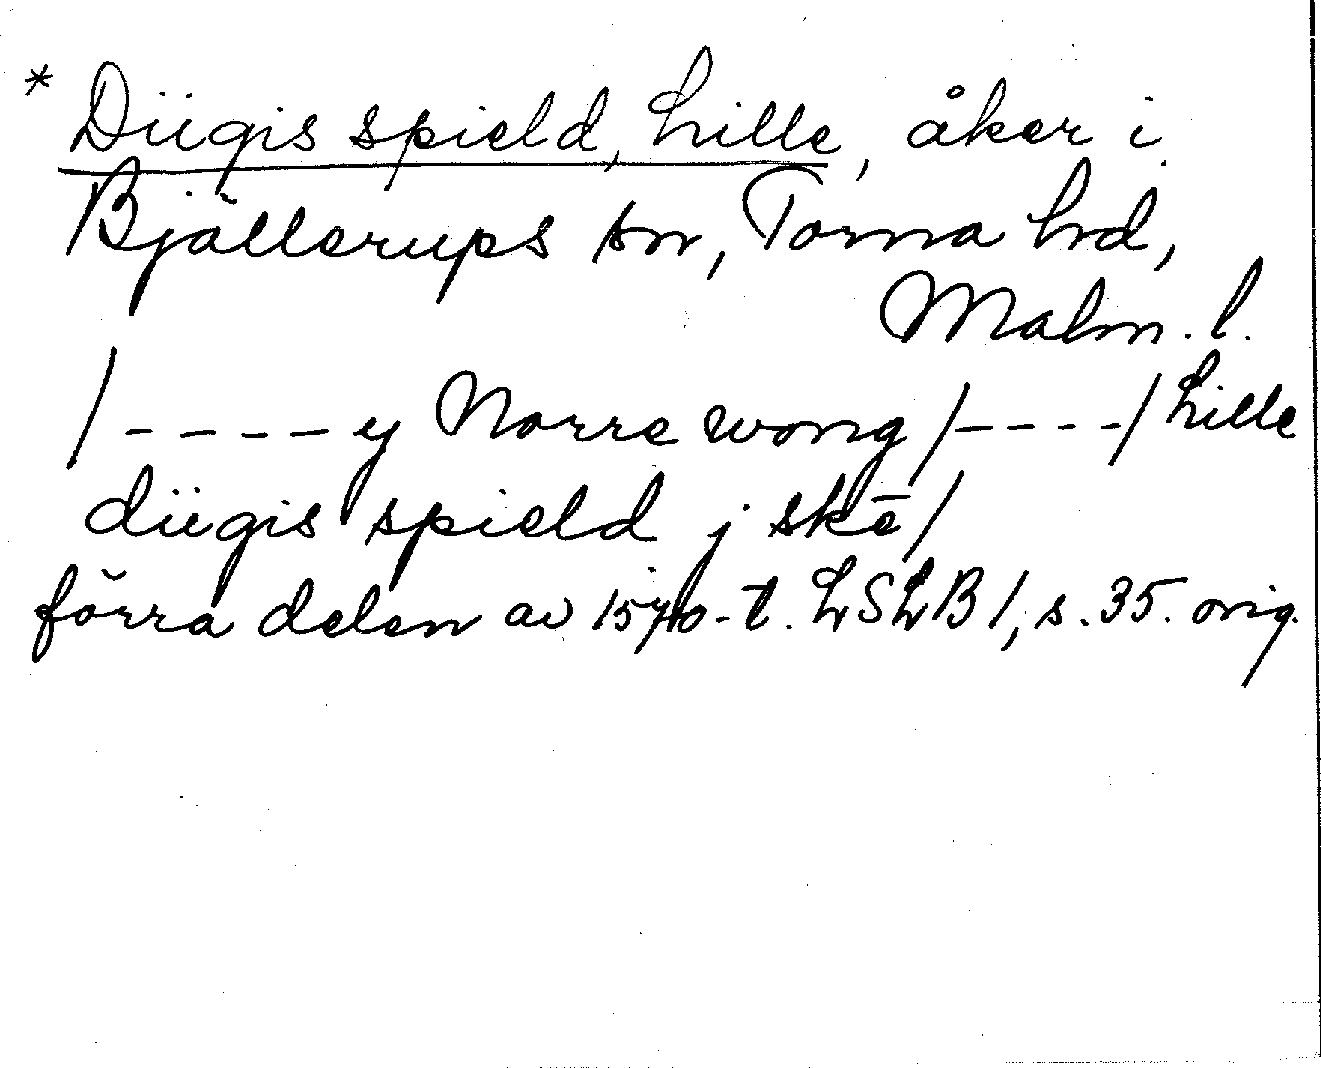 * Diigis spield, Lille, åker i
Bjällerups sn, Torna hd,
Malm. l.
/----y Norre wong/----/Lille
diigis spield j skē/
förra delen av 1570-t. LSLB1, s. 35. orig.